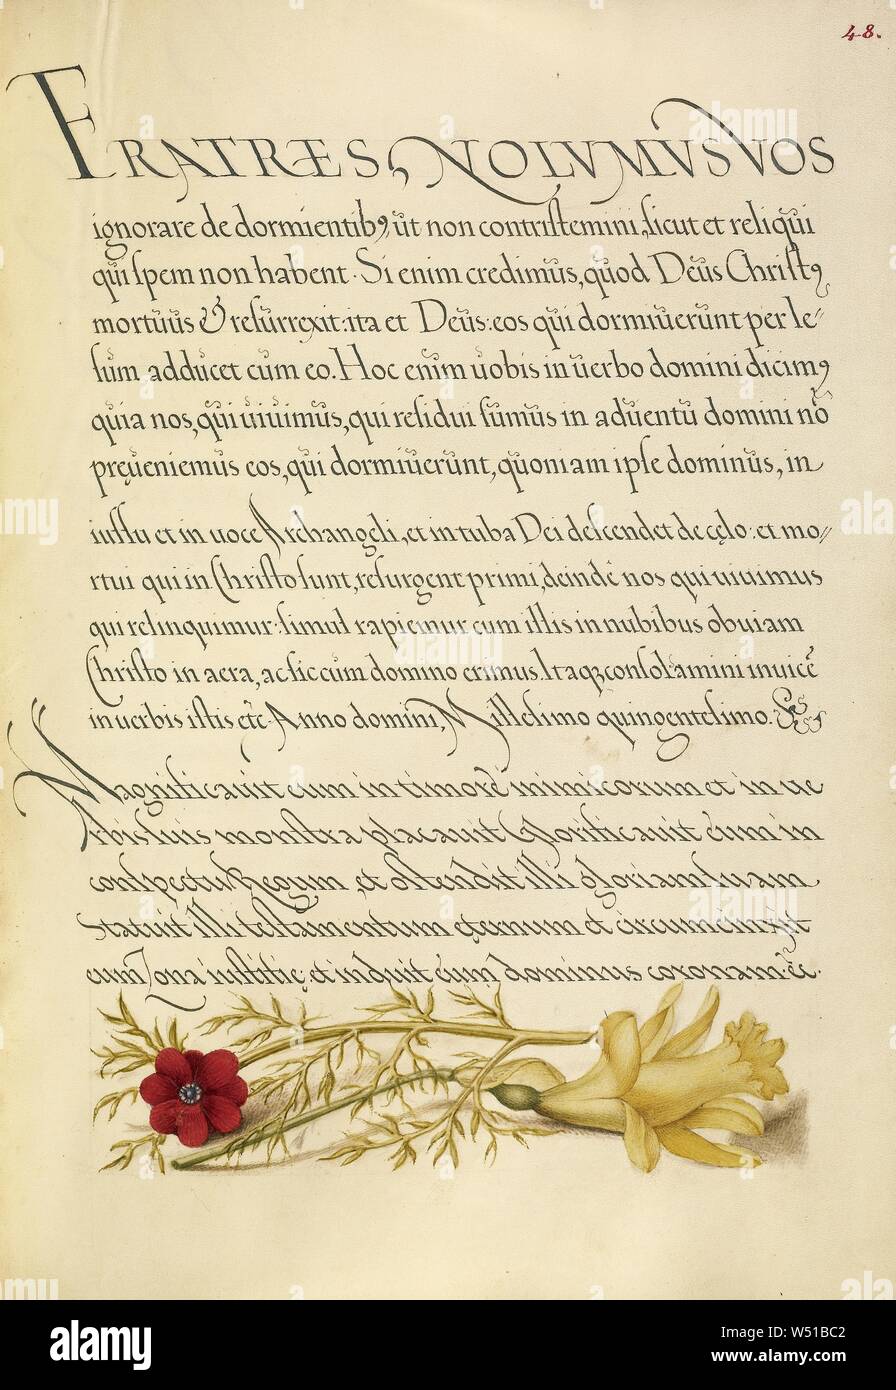 48.
FRATRES, NOLVMVS VOS
ignorare de dormientibꝰ, ut non contristemini, sicut et reliqui
qui spem non habent. Si enim credimus, quod Deus Christꝰ
mortuus & resurrexit: ita et Deus: eos qui dormiuerunt per Ie//
sum adducet cum eo. Hoc enim uobis in uerbo domini dicimꝰ
quia nos, qui uiuimus, qui residui sumus in aduentu domini nr̃o
pręueniemus eos, qui dormiuerunt, quoniam ipse dominus, in
iussu et in uoce Archangeli, et in tuba Dei descendet de cęlo: et mo//
rtui qui in Christo sunt, resurgent primi, deinde nos qui uiuimus
qui relinquimur: simul rapiemur cum illis in nubibus obuiam
Christo in aera, ac sic cum domino erimus. Itaqꝫ consolamini inuicẽ
in uerbis istis etc. Anno domini, Millesimo quingentesimo.
Magnificauit eum in timore inimicorum et in ue
rbis suis monstra placauit Glorificauit eum in
conspectu Regum, et ostendit illi gloriam suam
Statuit illi testamentum ęternum et circumcinxit
eum Zona iustitię: et induit eum dominus coronam. &c.
alamy
alamy
Image ID: W51BC2
www.alamy.com